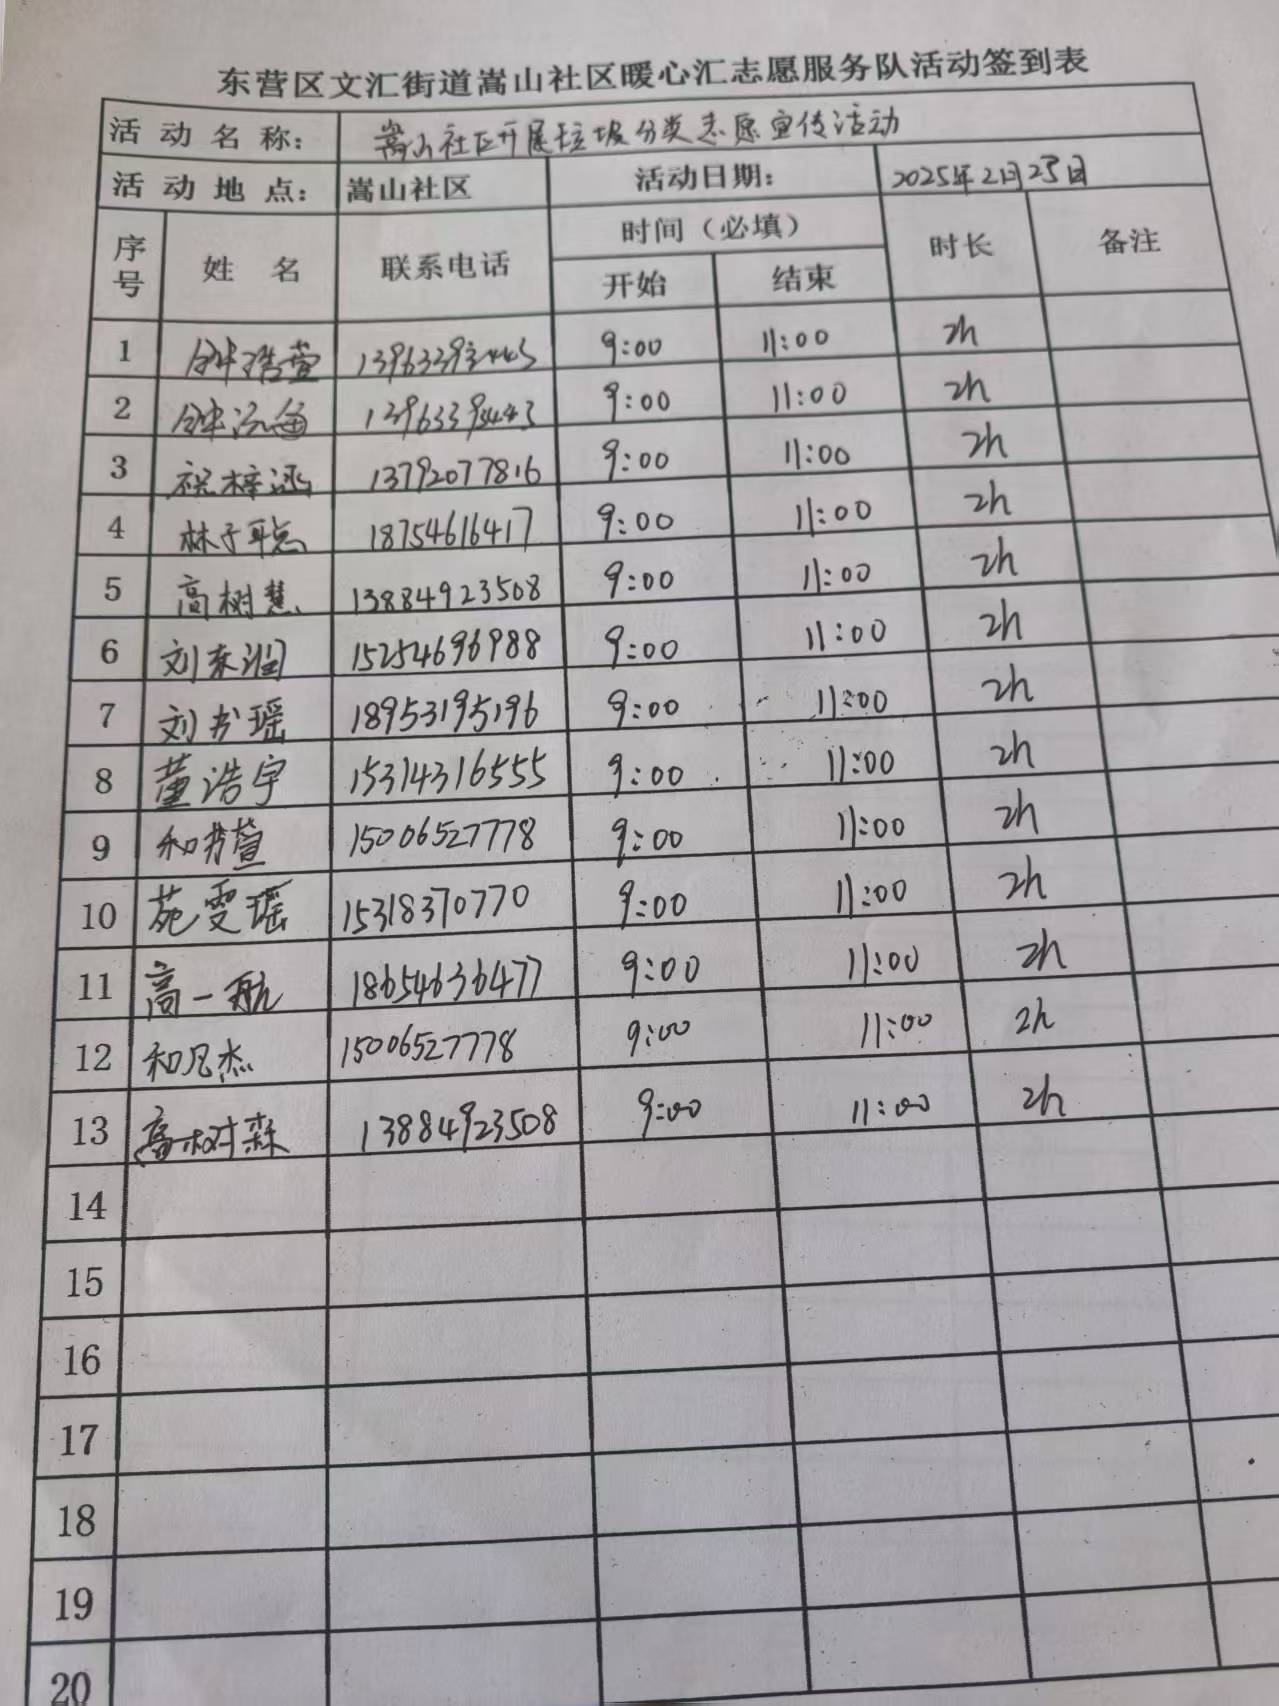 东营区文汇街道嵩山社区暖心汇志愿服务队活动签到表
活动名称： 嵩山社区开展垃圾分类志愿宣传活动
活动地点： 嵩山社区 活动日期： 2025年2月23日
序号 姓名 联系电话 时间（必填） 时长 备注
开始 结束
1 钟浩萱 9:00 11:00 2h
2 9:00 11:00 2h
3 祝梓涵 13792077816 9:00 11:00 2h
4 林子聪 18754616417 9:00 11:00 2h
5 高树慧 13884923508 9:00 11:00 2h
6 刘东润 15254696988 9:00 11:00 2h
7 刘书瑶 18953195196 9:00 11:00 2h
8 董浩宇 15314316555 9:00 11:00 2h
9 15006527778 9:00 11:00 2h
10 苑雯瑶 15318370770 9:00 11:00 2h
11 高一航 18654636477 9:00 11:00 2h
12 和凡杰 15006527778 9:00 11:00 2h
13 高树森 13884923508 9:00 11:00 2h
14
15
16
17
18
19
20